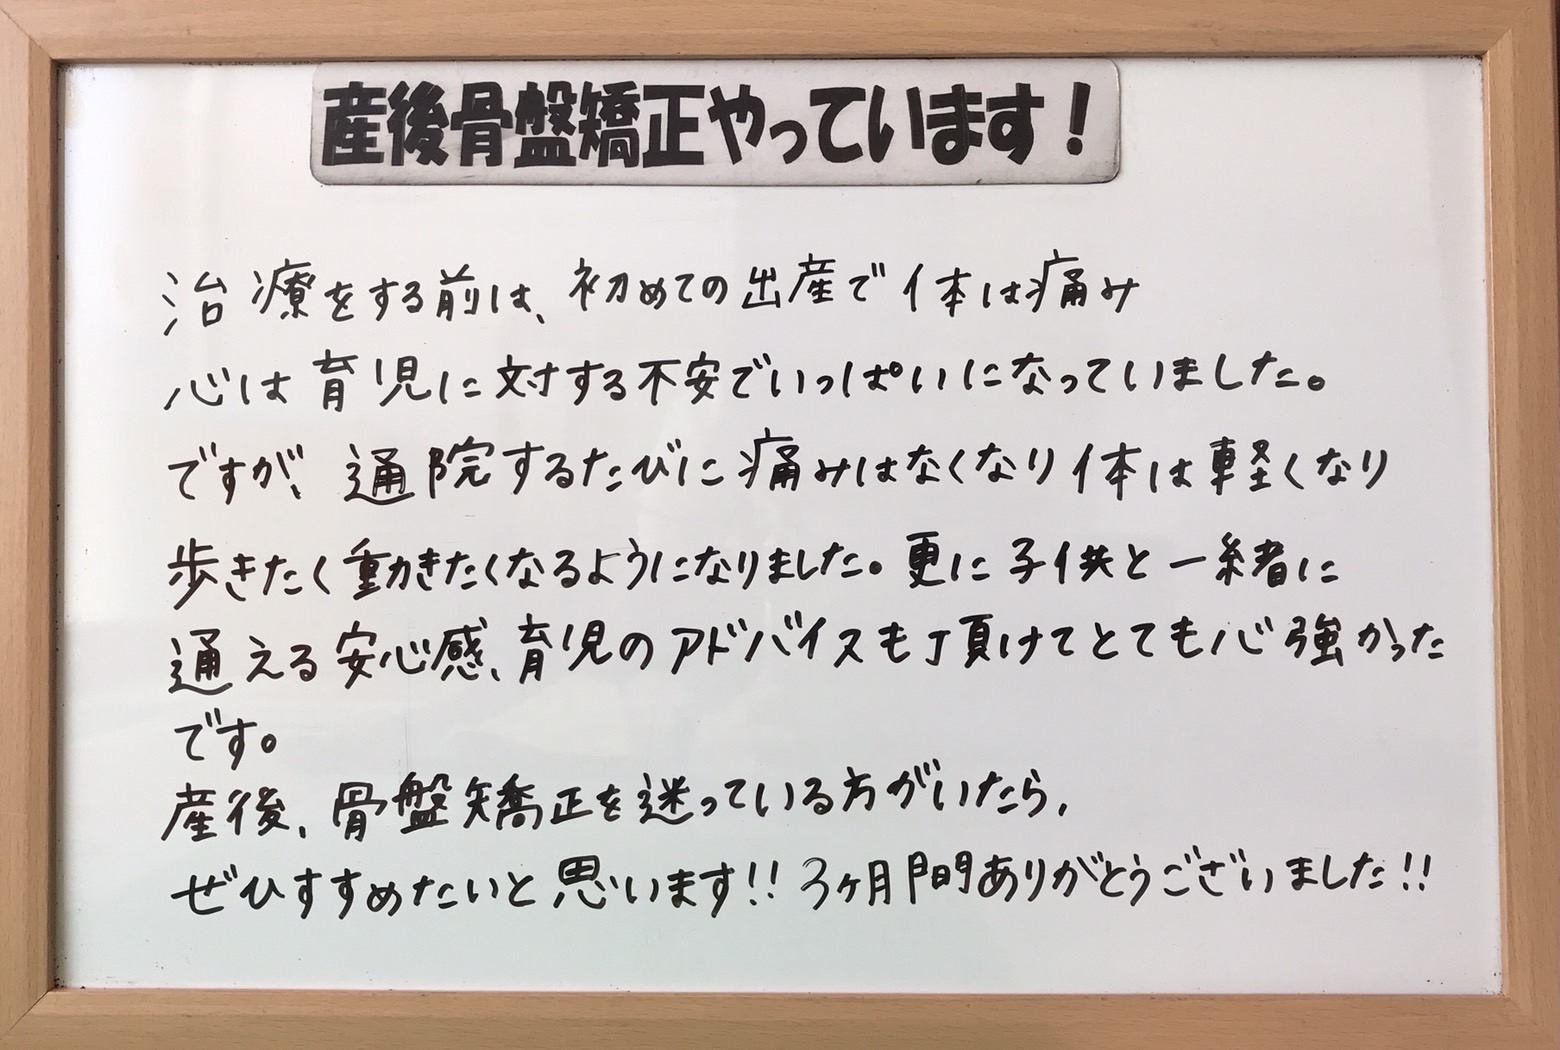 産後骨盤矯正やっています！
治療をする前は、初めての出産で体は痛み
心は育児に対する不安でいっぱいになっていました。
ですが、通院するたびに痛みはなくなり体は軽くなり
歩きたく動きたくなるようになりました。更に子供と一緒に
通える安心感、育児のアドバイスも頂けてとても心強かった
です。
産後、骨盤矯正を迷っている方がいたら、
ぜひすすめたいと思います!! 3ヶ月間ありがとうございました!!